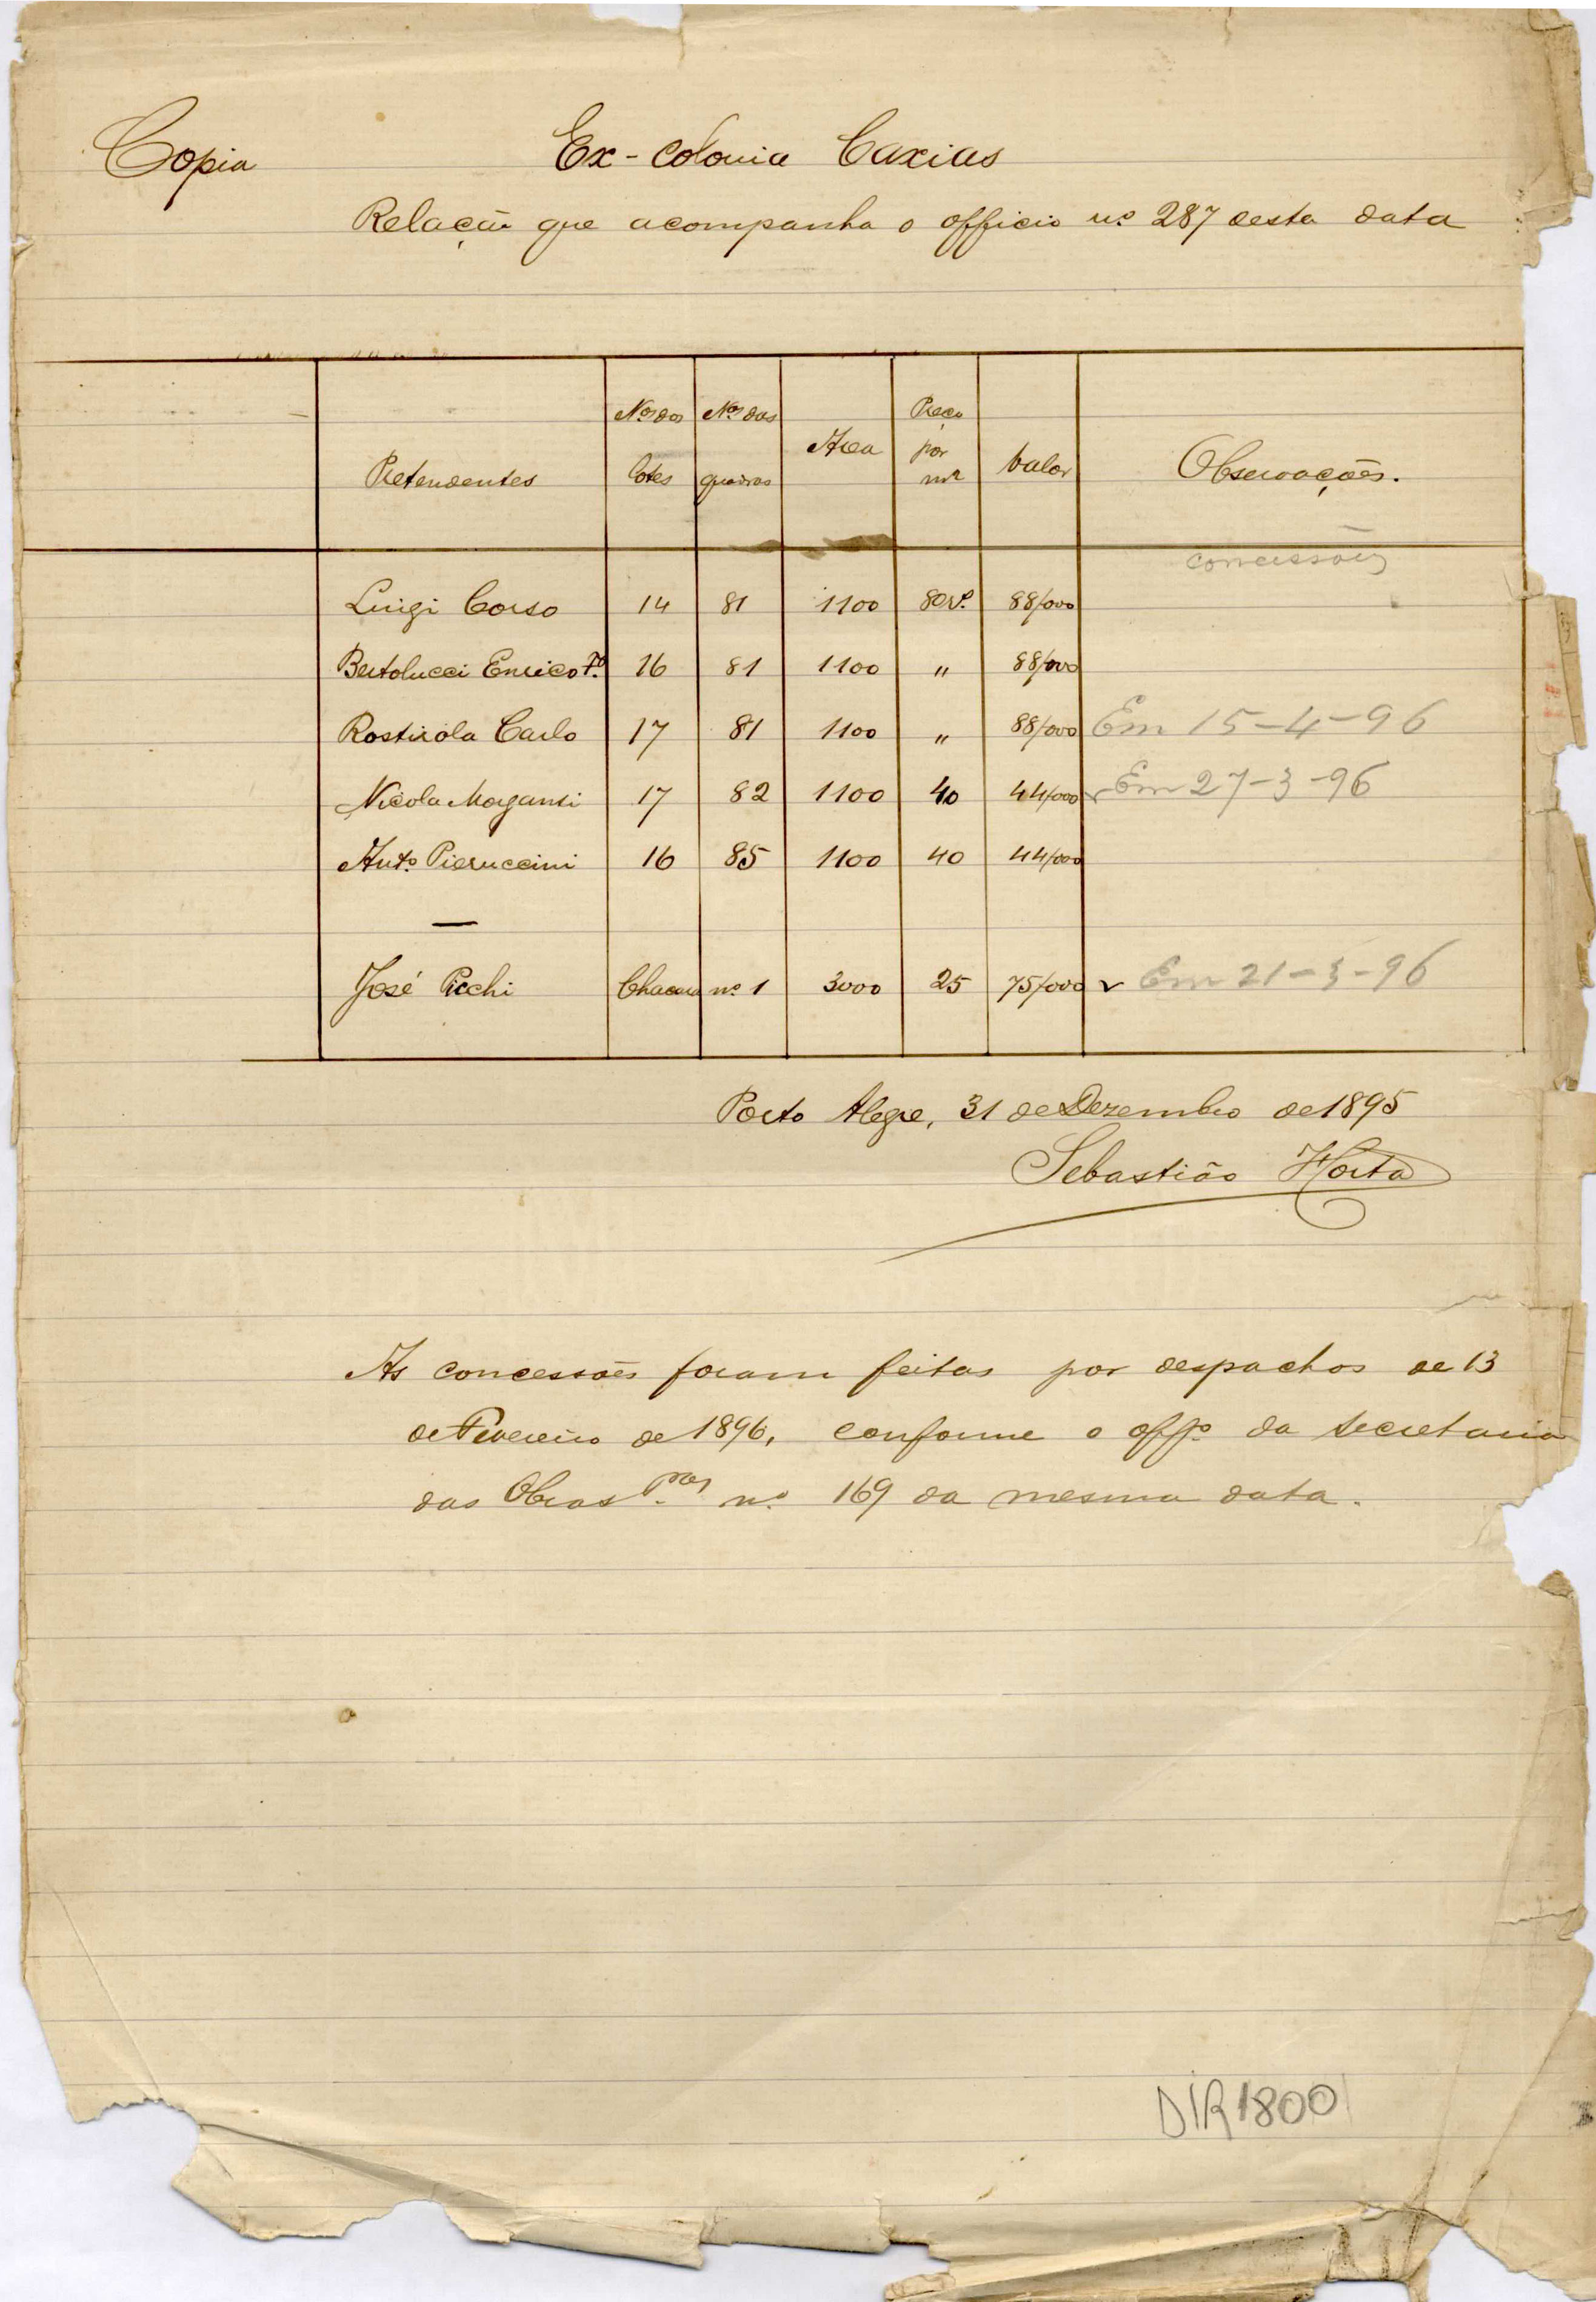 Copia
Ex-colonia Caxias
Relação que acompanha o officio nº 287 desta data
Pretendentes | Nos dos lotes | Nos das quadras | Area | Preço por m2 | Valor | Observações.
concessões
Luigi Corso | 14 | 81 | 1100 | 80 rs. | 88/000
Bertolucci Enrico Fo. | 16 | 81 | 1100 | " | 88/000
Rostirola Carlo | 17 | 81 | 1100 | " | 88/000 | Em 15-4-96
Nicola Morganti | 17 | 82 | 1100 | 40 | 44/000 | Em 27-3-96
Anto. Pieruccini | 16 | 85 | 1100 | 40 | 44/000
—
José Picchi | Chacara nº 1 | 3000 | 25 | 75/000 | v Em 21-3-96
Porto Alegre, 31 de Dezembro de 1895
Sebastião Horta
As concessões foram feitas por despachos de 13
de Fevereiro de 1896, conforme o offo. da Secretaria
das Obras Pcas nº 169 da mesma data.
DIR1800